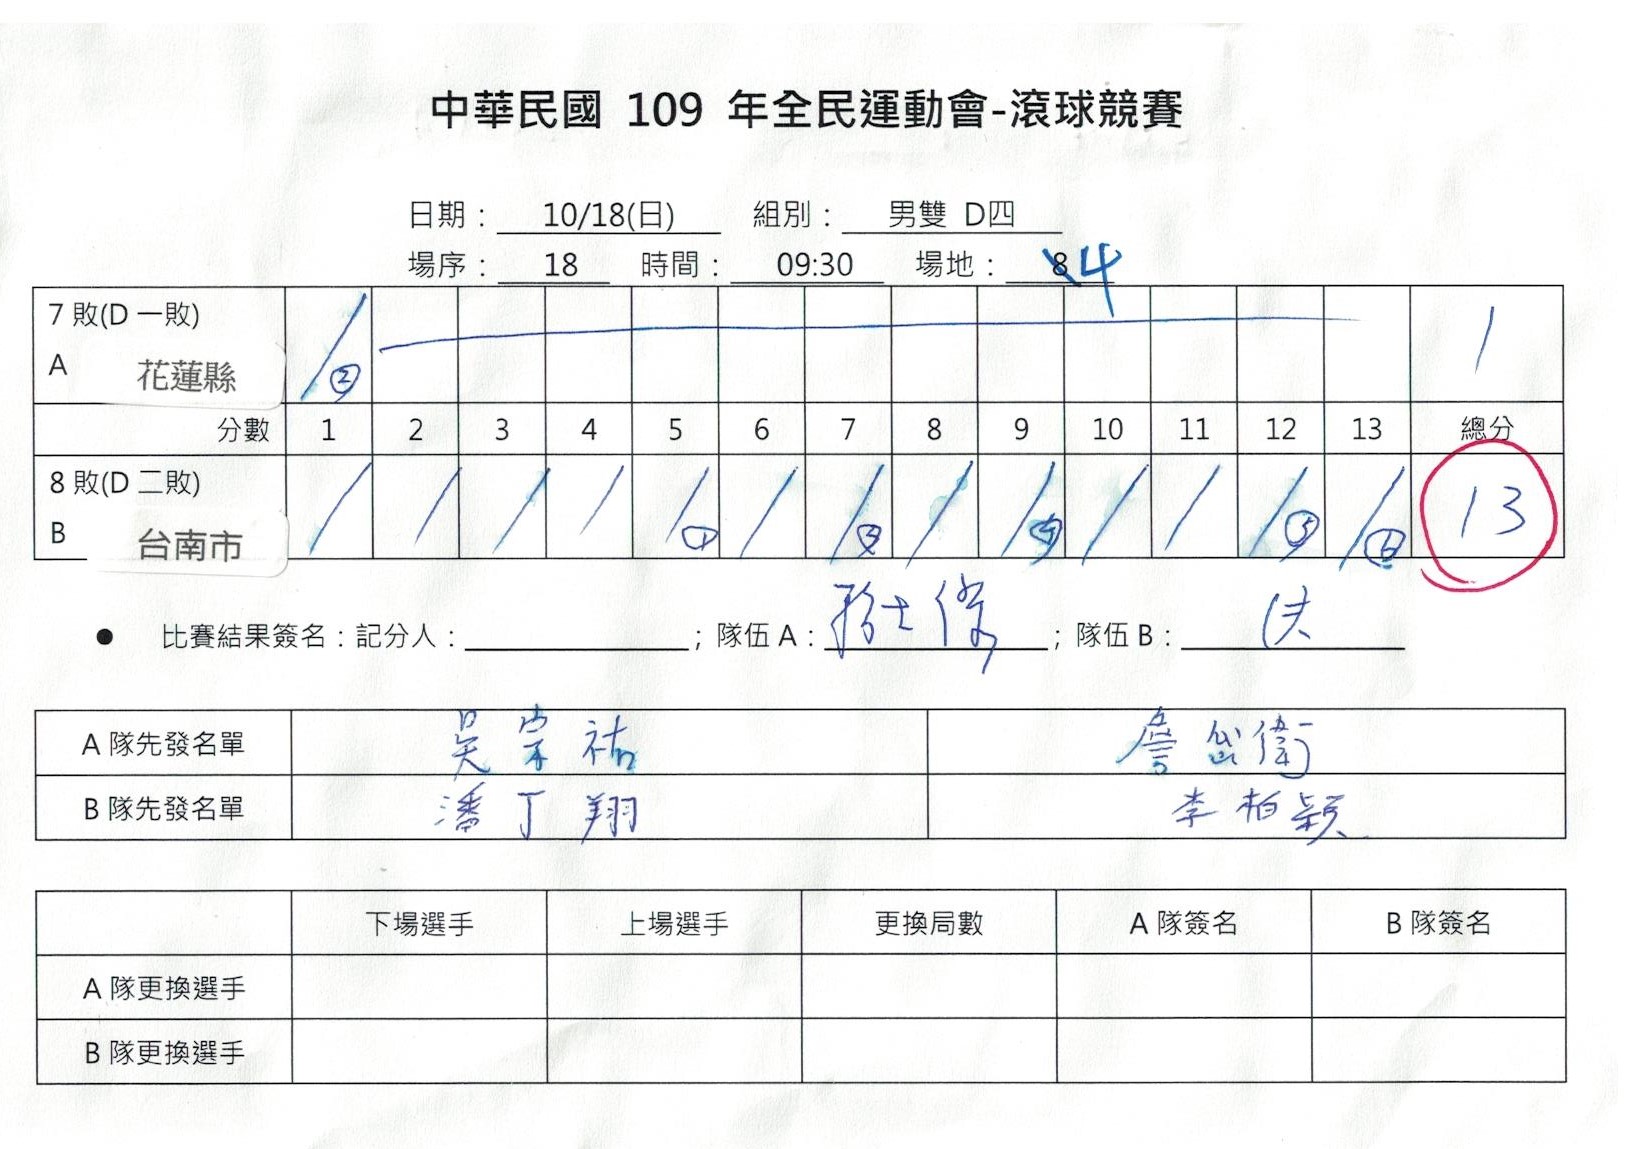 中華民國 109 年全民運動會-滾球競賽
日期： 10/18(日) 組別： 男雙 D四
場序： 18 時間： 09:30 場地： 8 4
7 敗(D 一敗)
A 花蓮縣 / ② 1
分數 1 2 3 4 5 6 7 8 9 10 11 12 13 總分
8 敗(D 二敗)
B 台南市 / / / / /① / /③ / /④ / / /⑤ /⑥ 13
● 比賽結果簽名：記分人： ；隊伍 A： ；隊伍 B：
A 隊先發名單 吳宗祐 詹岱衛
B 隊先發名單 潘丁翔 李柏穎
下場選手 上場選手 更換局數 A 隊簽名 B 隊簽名
A 隊更換選手
B 隊更換選手